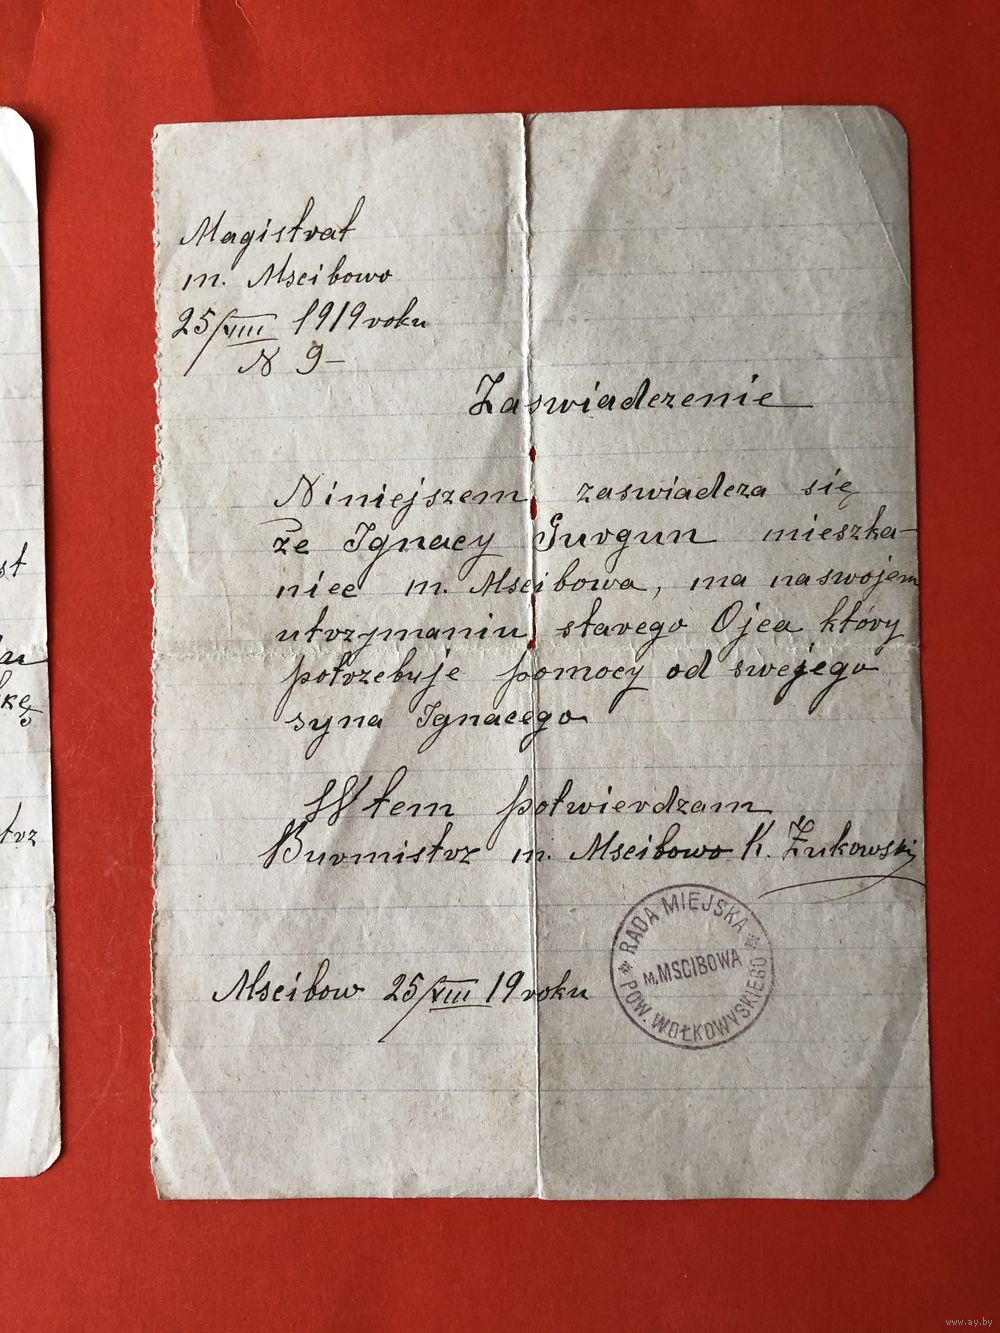 Magistrat
m. Mscibowo
25/VIII 1919 roku
N 9-
Zaswiadczenie
Niniejszem zaswiadcza się
że Ignacy Gurgun mieszka-
niec m. Mscibowa, ma na swojem
utrzymaniu starego Ojca który
potrzebuje pomocy od swejego
syna Ignacego
W tem potwierdzam
Burmistrz m. Mscibowo K. Żukowski
RADA MIEJSKA
M. MSCIBOWA
POW. WOŁKOWYSKIEGO
Mscibow 25/VIII 19 roku
st
kę
trz
www.ay.by